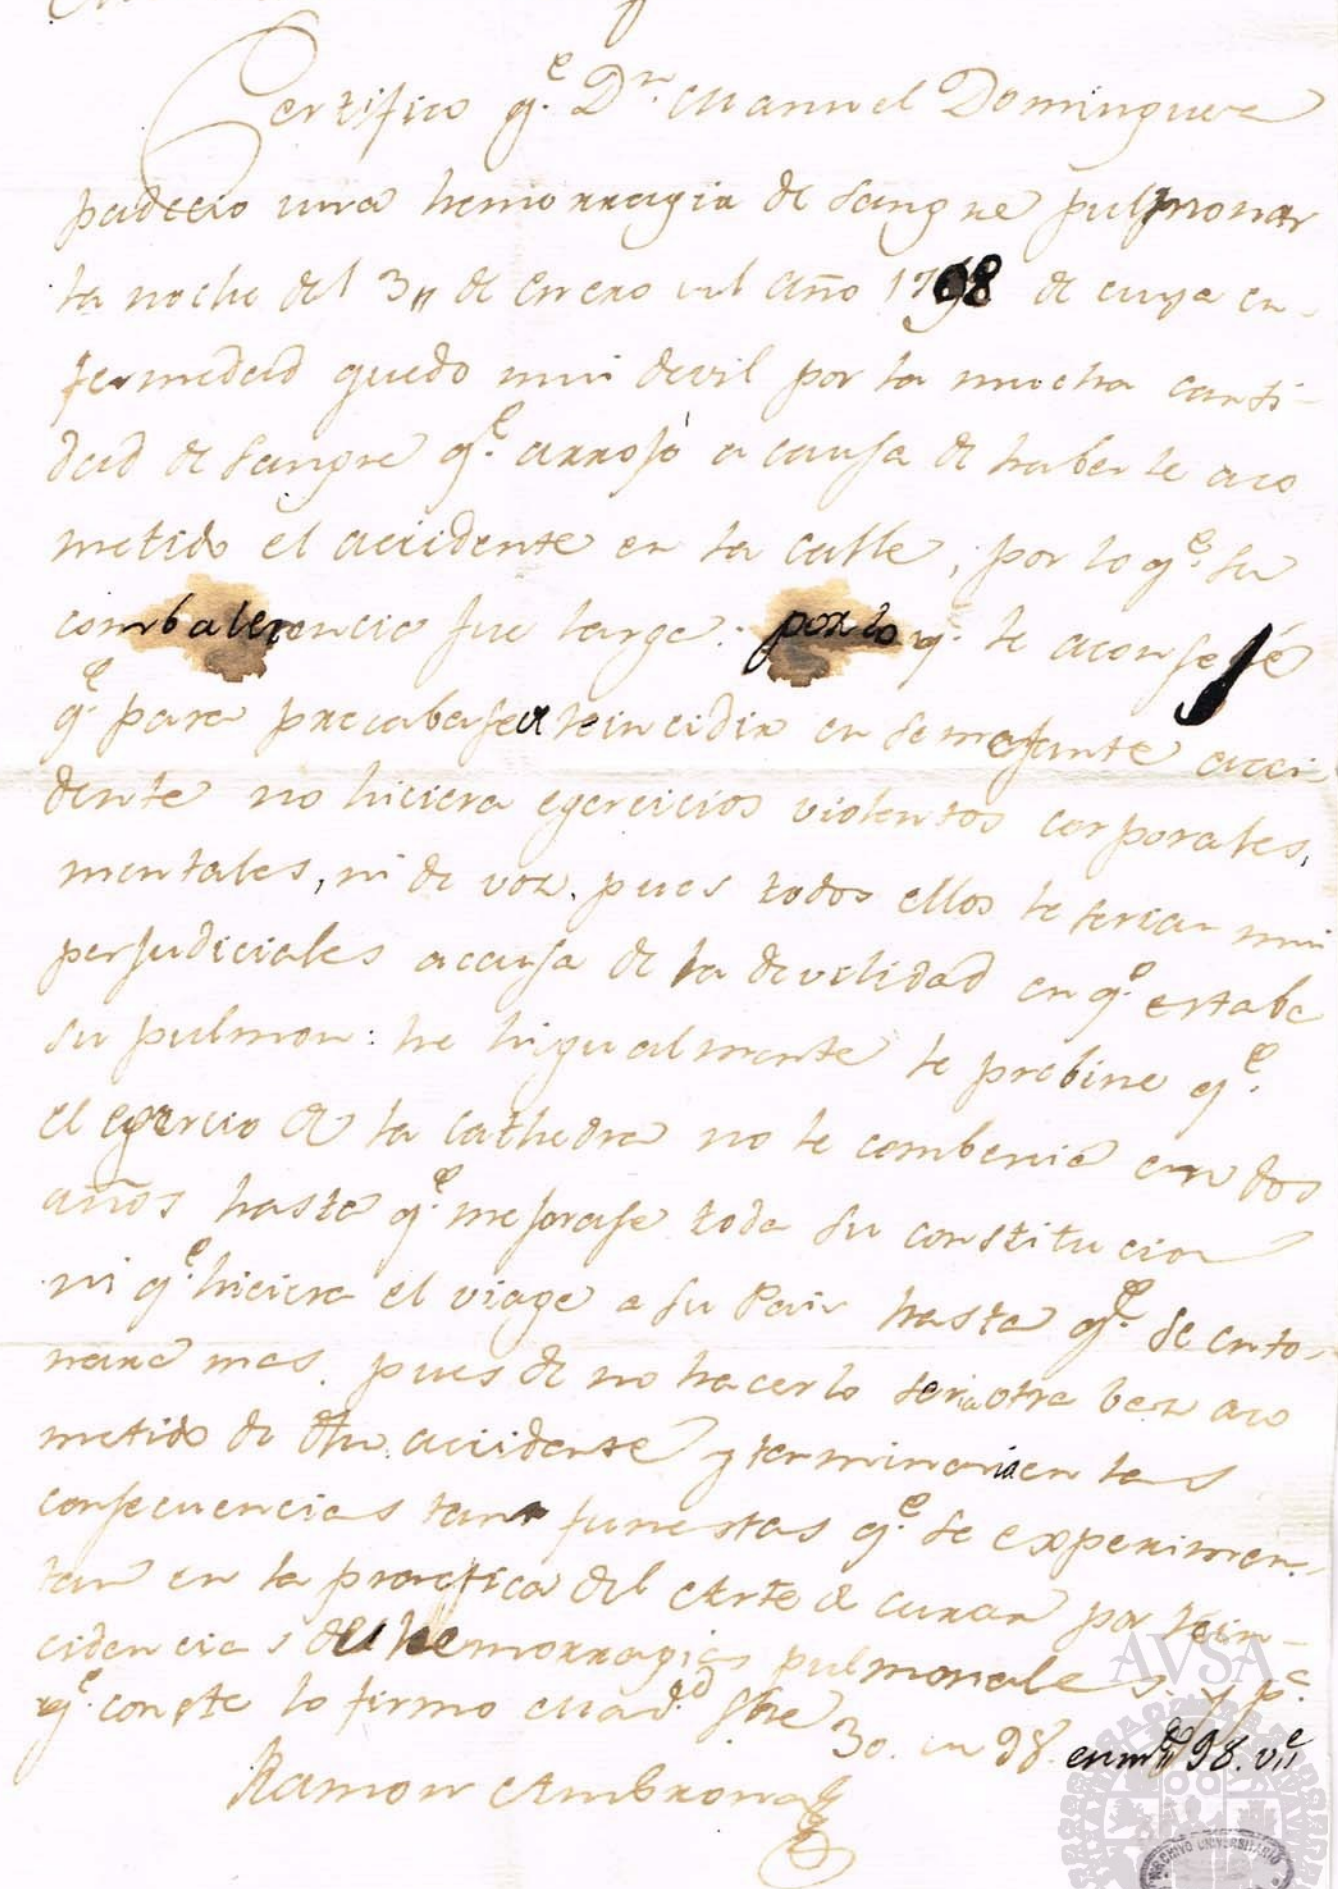 Certifico q.e Dn. Manuel Dominguez
padecio una hemorragia de sangre pulmonar
la noche del 3 de enero del año 1798 de cuya en-
fermedad quedo mui devil por la mucha canti-
dad de sangre q.e arrojó a causa de haberle aco
metido el accidente en la calle, por lo q.e su
combalecencia fue larga. por lo q.e le aconsejé
q.e para precaberse a reincidir en semejante acci
dente no hiciera egercicios violentos corporales,
mentales, ni de voz. pues todos ellos le serian mui
perjudiciales a causa de la devilidad en q.e estaba
su pulmon: he higualmente le prebine q.e
el egercio de la cathedra no le combenia en dos
años hasta q.e mejorase toda su constitucion
ni q.e hiciera el viage a su Pais hasta q.e se ento-
nara mas. pues de no hacerlo seria otra bez aco
metido de dho. accidente y terminaria en las
consecuencias tan funestas q.e se experimen-
tan en la practica del Arte de curar por rein-
cidencias de hemorragias pulmonales. y pa.
q.e conste lo firmo Mad.d 30. en 98. enmdo 98. v.e
Ramon Ambrona
AVSA
ARCHIVO UNIVERSITARIO